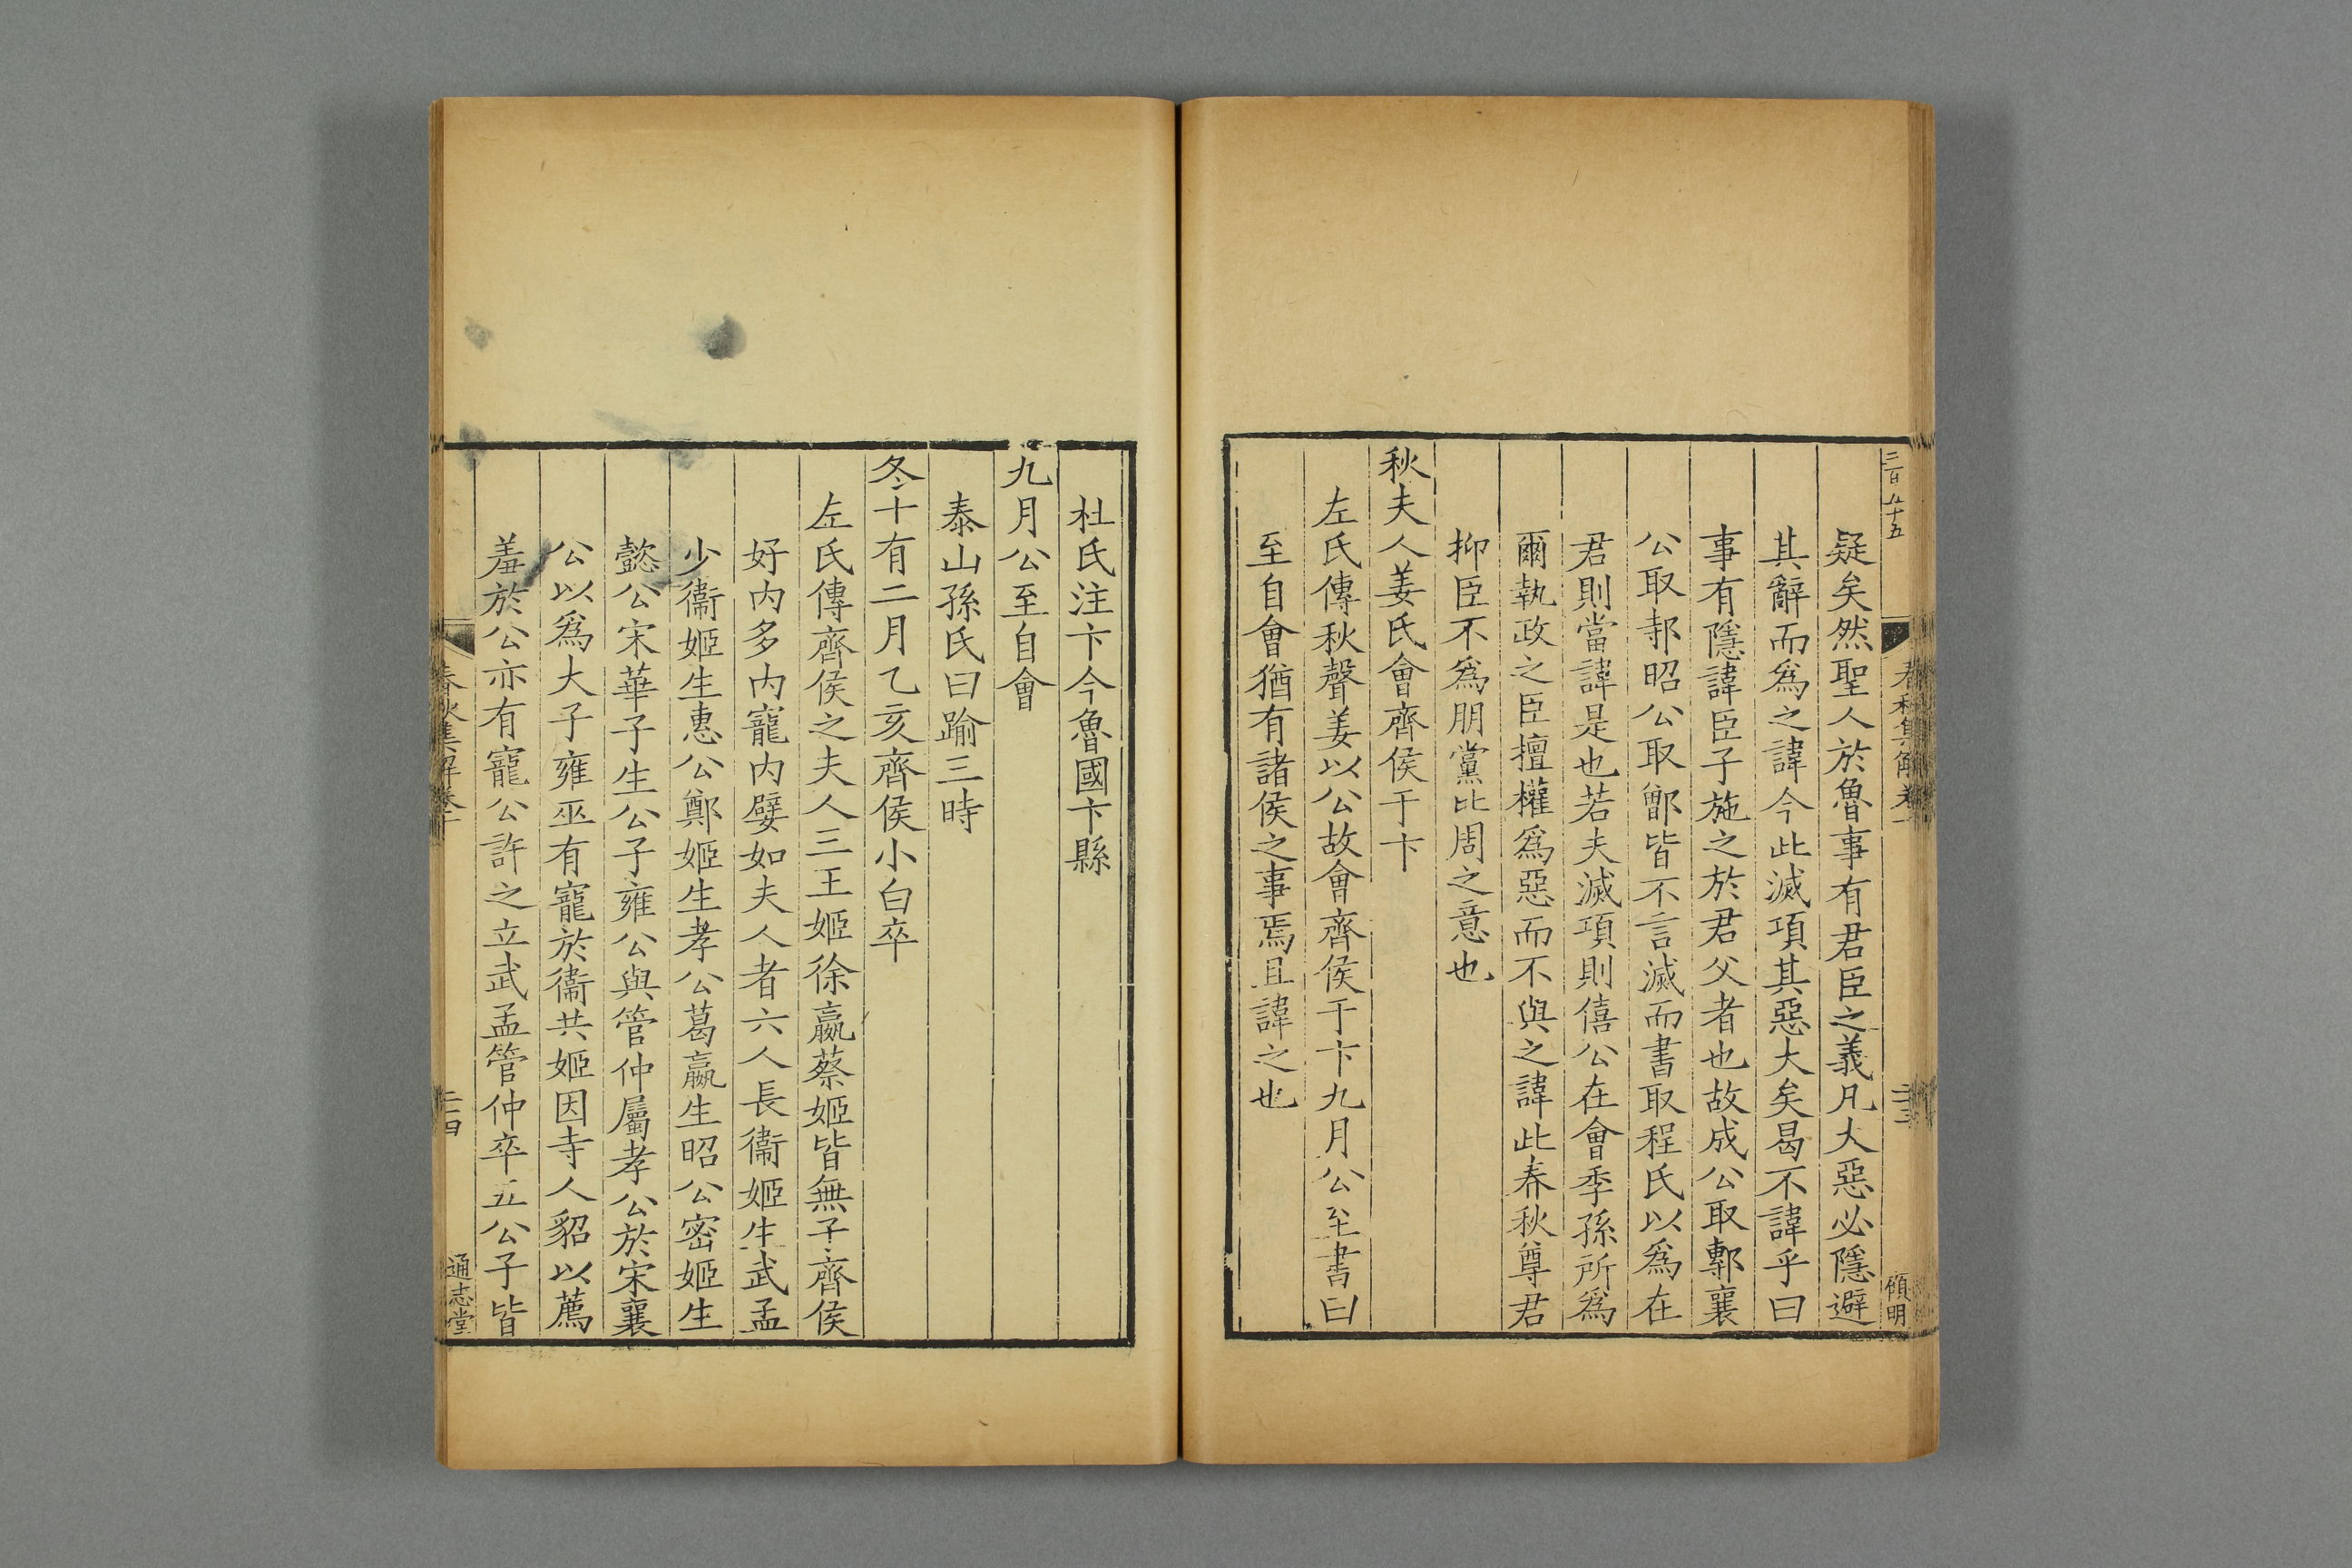 三百五十五
春秋集解卷十
二十三
顧明
疑矣然聖人於魯事有君臣之義凡大惡必隱避
其辭而爲之諱今此滅項其惡大矣曷不諱乎曰
事有隱諱臣子施之於君父者也故成公取鄟襄
公取邿昭公取鄫皆不言滅而書取程氏以爲在
君則當諱是也若夫滅項則僖公在會季孫所爲
爾執政之臣擅權爲惡而不與之諱此春秋尊君
抑臣不爲朋黨比周之意也
秋夫人姜氏會齊侯于卞
左氏傳秋聲姜以公故會齊侯于卞九月公至書曰
至自會猶有諸侯之事焉且諱之也
杜氏注卞今魯國卞縣
九月公至自會
泰山孫氏曰踰三時
冬十有二月乙亥齊侯小白卒
左氏傳齊侯之夫人三王姬徐嬴蔡姬皆無子齊侯
好内多内寵内嬖如夫人者六人長衞姬生武孟
少衞姬生惠公鄭姬生孝公葛嬴生昭公密姬生
懿公宋華子生公子雍公與管仲屬孝公於宋襄
公以爲大子雍巫有寵於衞共姬因寺人貂以薦
羞於公亦有寵公許之立武孟管仲卒五公子皆
春秋集解卷十
二十四
通志堂